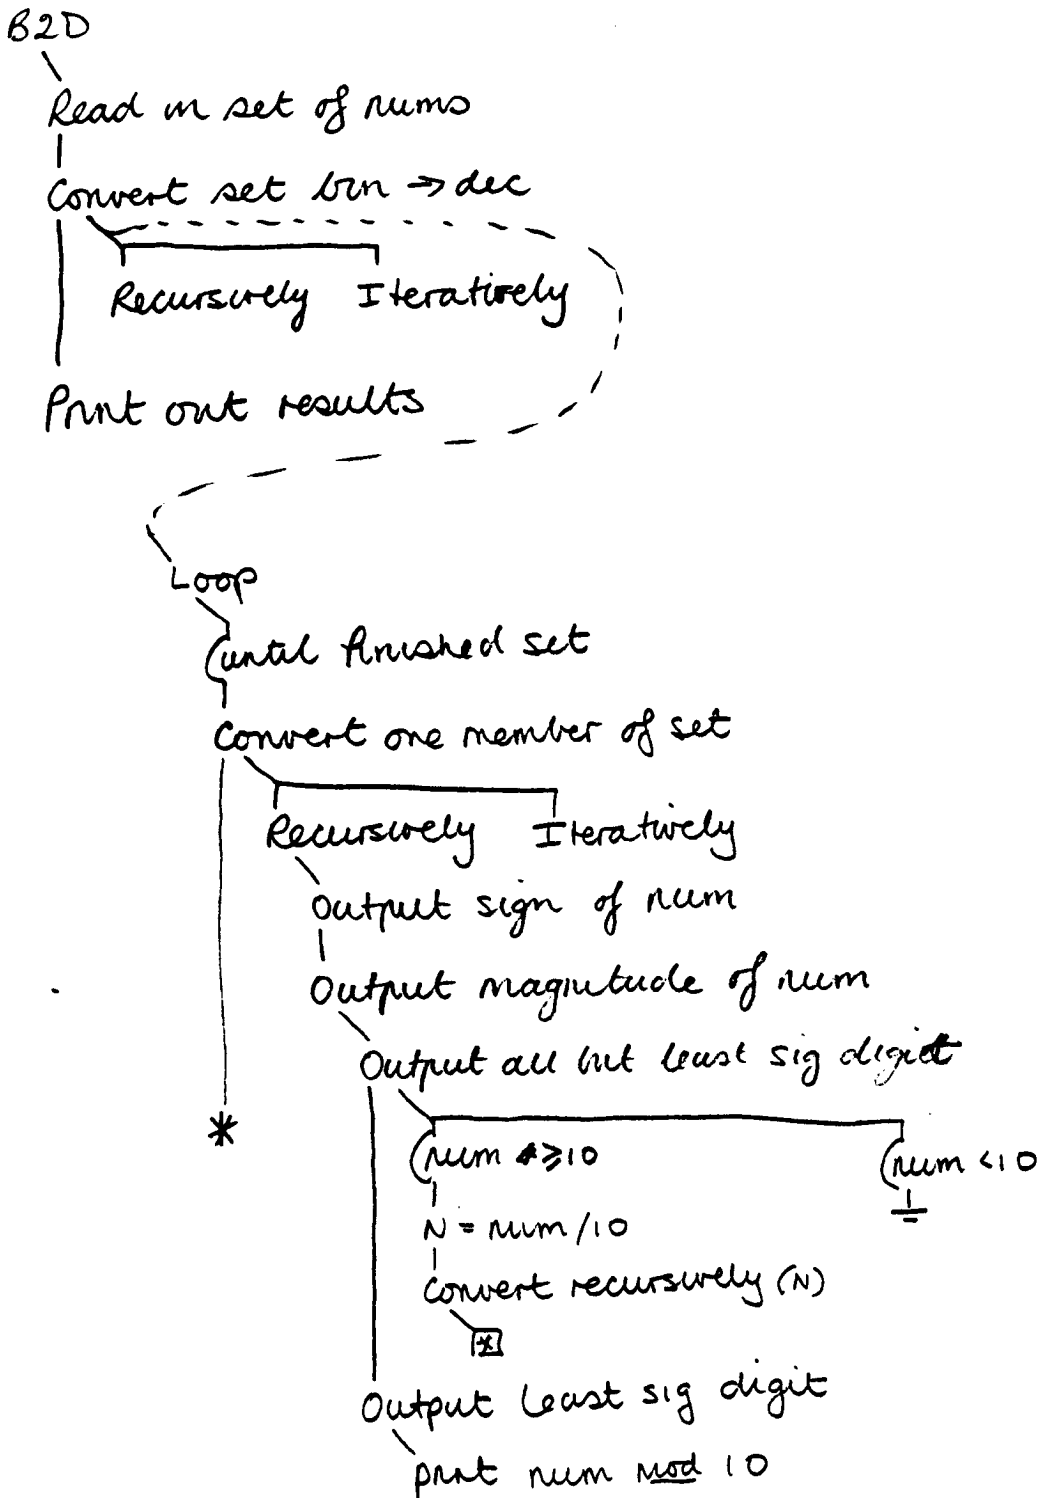 B2D
Read in set of nums
Convert set bin → dec
Recursively Iteratively
Print out results
Loop
(until finished set
Convert one member of set
Recursively Iteratively
Output sign of num
Output magnitude of num
Output all but least sig digit
(num ≥10 (num <10
N = num/10
Convert recursively (N)
*
*
Output least sig digit
print num mod 10